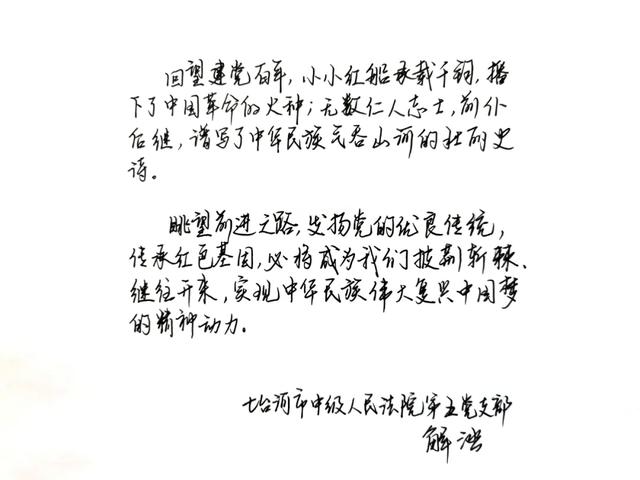 回望建党百年，小小红船承载千钧，播
下了中国革命的火种；无数仁人志士，前仆
后继，谱写了中华民族气吞山河的壮丽史
诗。
眺望前进之路，发扬党的优良传统，
传承红色基因，必将成为我们披荆斩棘、
继往开来，实现中华民族伟大复兴中国梦
的精神动力。
七台河市中级人民法院第五党支部
解洪